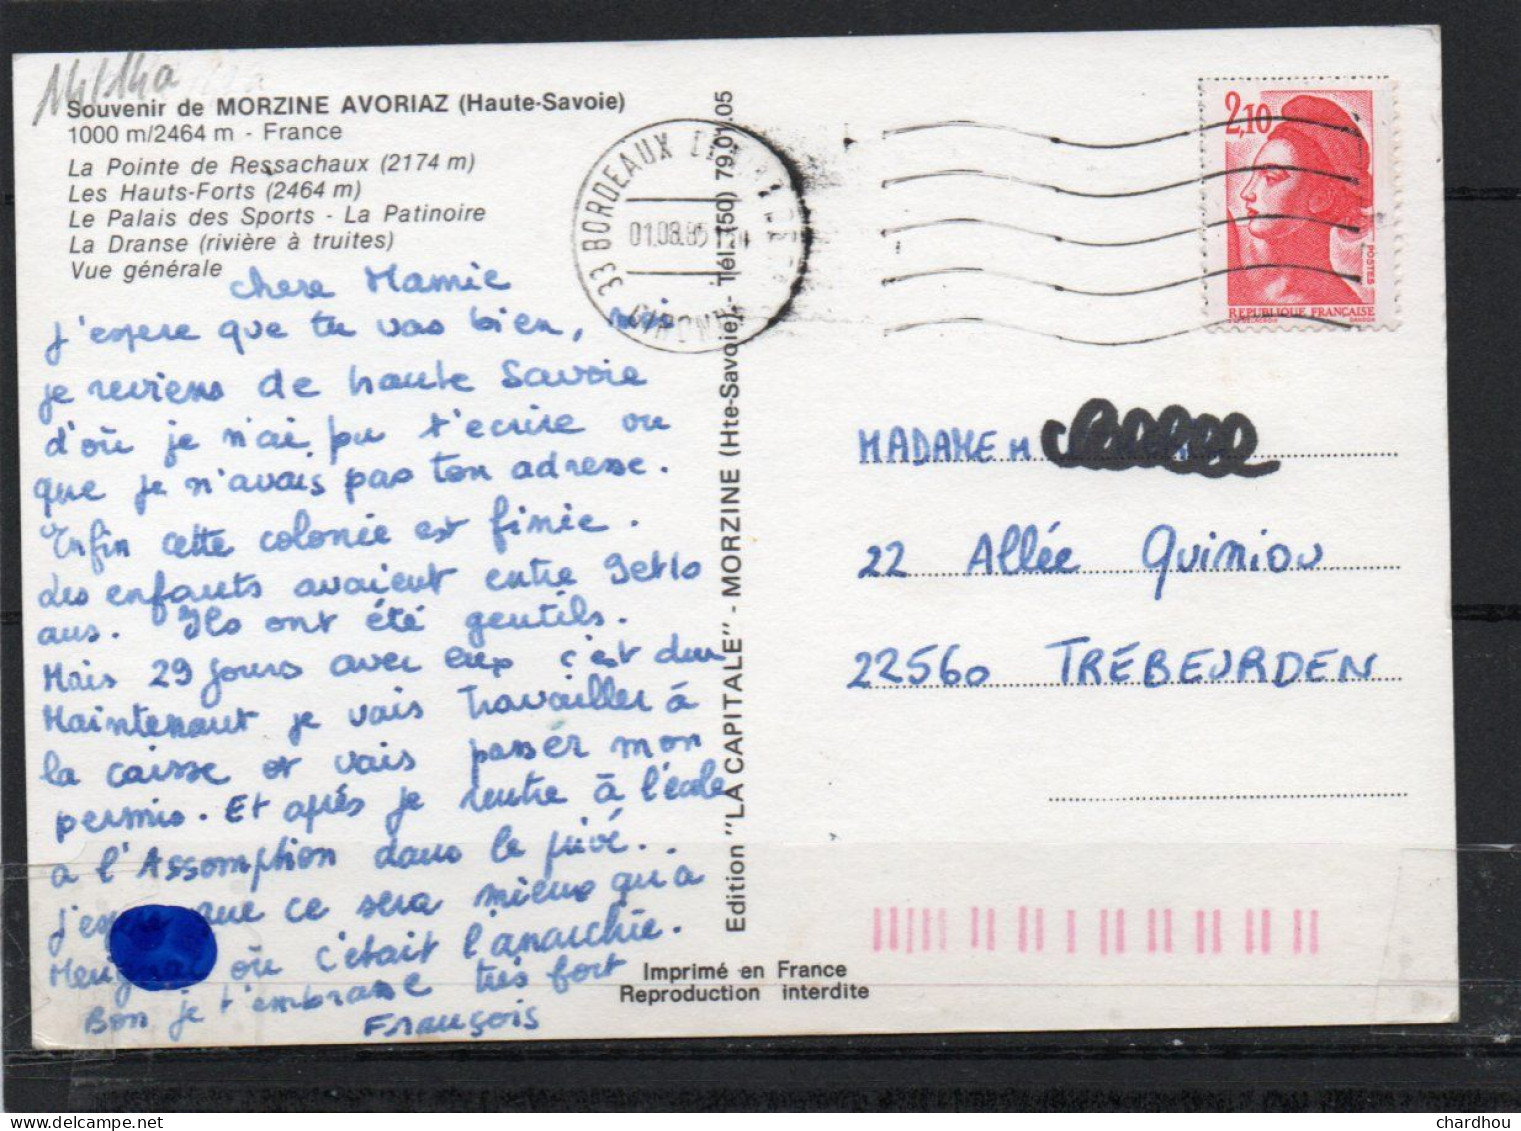 Souvenir de MORZINE AVORIAZ (Haute-Savoie)
1000 m/2464 m - France
La Pointe de Ressachaux (2174 m)
Les Hauts-Forts (2464 m)
Le Palais des Sports - La Patinoire
La Dranse (rivière à truites)
Vue générale
chere Mamie
J'espere que tu vas bien, moi
je reviens de haute Savoie
d'où je n'ai pu t'ecrire vu
que je n'avais pas ton adresse.
Enfin cette colonie est finie.
des enfants avaient entre 9et10
ans. Ils ont été gentils.
Mais 29 jours avec eux c'est dur
Maintenant je vais travailler à
la caisse et vais passér mon
permis. Et après je rentre à l'école
a l'Assomption dans le privé.
J'esp que ce sera mieux qu'a
Merignac où c'était l'anarchie.
Bon je t'embrasse très fort
François
Edition "LA CAPITALE" - MORZINE (Hte-Savoie) - Tél. (50) 79.01.05
33 BORDEAUX
01.08.85
2,10
POSTES
REPUBLIQUE FRANÇAISE
MADAME M
22 Allée Quiniou
22560 TRÉBEURDEN
Imprimé en France
Reproduction interdite
chardhou